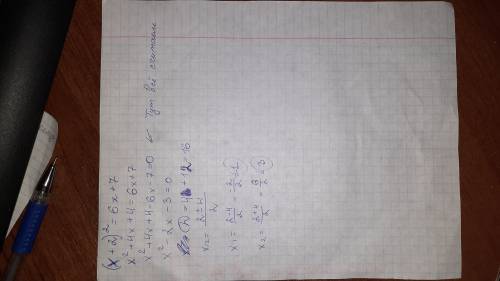 (x+2)² = 6x+7
x²+4x+4=6x+7
x²+4x+4-6x-7=0 ← Тут всё считаем
x²-2x-3=0
D=4+12=16
x₁₂= 2±4/2
x₁= 2-4/2 = -2/2 = -1
x₂= 2+4/2 = 6/2 = 3